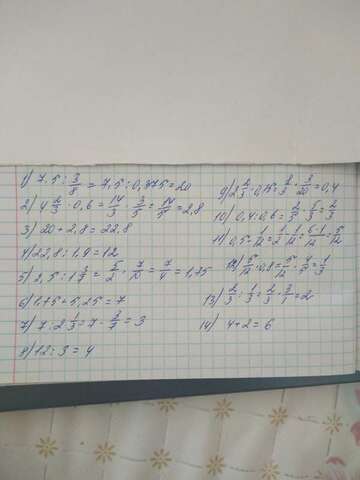 1) 7,5 : 3/8 = 7,5 : 0,375 = 20
2) 4 2/3 · 0,6 = 14/3 · 3/5 = 14/5 = 2,8
3) 20 + 2,8 = 22,8
4) 22,8 : 1,9 = 12
5) 2,5 : 1 3/7 = 5/2 · 7/10 = 7/4 = 1,75
6) 1,75 + 5,25 = 7
7) 7 : 2 1/3 = 7 · 3/7 = 3
8) 12 : 3 = 4
9) 2 2/3 · 0,15 = 8/3 · 3/20 = 0,4
10) 0,4 : 0,6 = 2/5 · 5/3 = 2/3
11) 0,5 - 1/12 = 1/2 - 1/12 = 6-1/12 = 5/12
12) 5/12 · 0,8 = 5/12 · 4/5 = 1/3
13) 2/3 : 1/3 = 2/3 · 3/1 = 2
14) 4 + 2 = 6